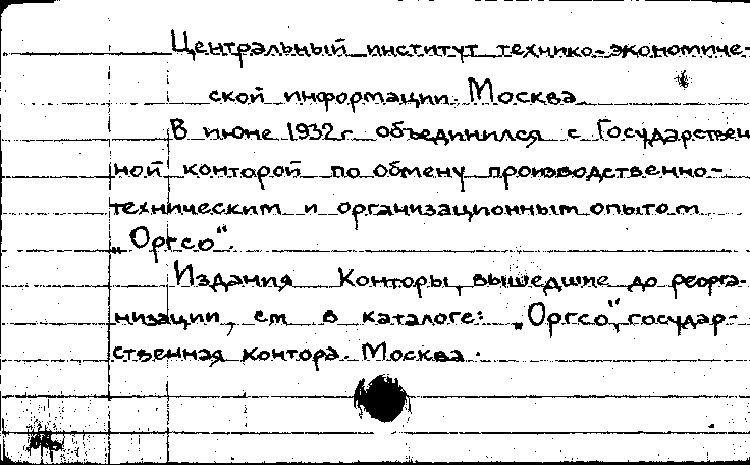 Центральный институт технико-экономиче-
ской информации. Москва
В июне 1932 г. объединился с Государствен
ной конторой по обмену производственно-
техническим и организационным опытом
„Оргсо“.
Издания Конторы, вышедшие до реорга-
низации, см в каталоге: „Оргсо“, государ-
ственная контора. Москва.